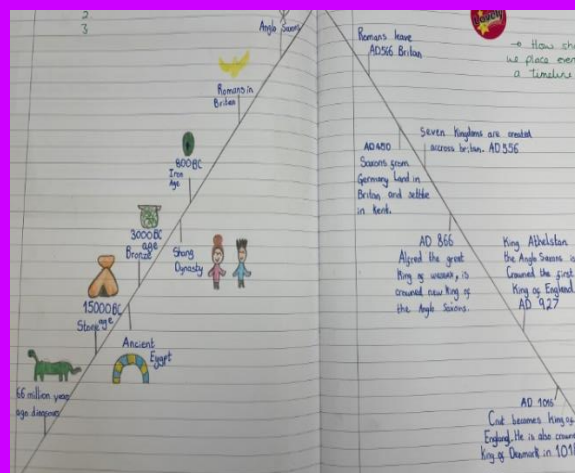 2
3
Anglo Saxons
Romans in
Britan
800BC
Iron
Age
3000BC
age
Bronze
Shang
Dynasty
15000BC
Stone age
Ancient
Egypt
66 million years
ago dinosaurs
Romans leave
AD566 Britan
Lovely
→ How sh
we place even
a timeline
Seven Kingdoms are created
accross britan. AD 556
AD 450
Saxons from
Germany Land in
Britan and settle
in Kent.
AD 866
Alfred the great
King of wessex, is
crowned new King of
the Anglo Saxons.
King Athelstan
the Anglo Saxons is
Crowned the first
King of England
AD 927
AD 1016
Cnut becomes King of
England. He is also crowned
King of Denmark in 101